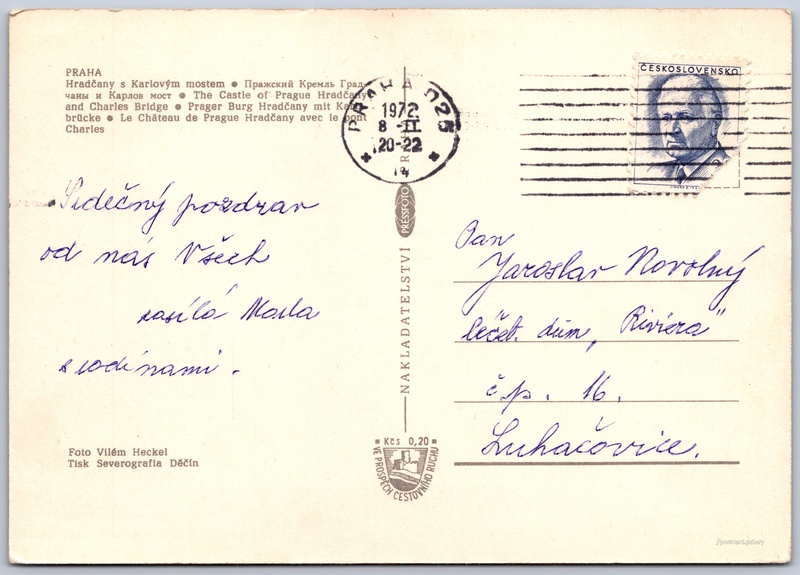 PRAHA
Hradčany s Karlovým mostem ● Пражский Кремль Град-
чаны и Карлов мост ● The Castle of Prague Hradčany
and Charles Bridge ● Prager Burg Hradčany mit Karl
brücke ● Le Château de Prague Hradčany avec le pont
Charles
PRAHA 025
1972
8 -II
20-22
ČESKOSLOVENSKO
Srdečný pozdrav
od nás Všech
zasílá
s rodinami.
Foto Vilém Heckel
Tisk Severografia Děčín
NAKLADATELSTVÍ PRESSFOTO PRAHA
Kčs 0,20
VE PROSPĚCH CESTOVNÍHO RUCHU
Pan
Jaroslav Novotný
léčeb. dům „Riviera"
č.p. 16.
Luhačovice.